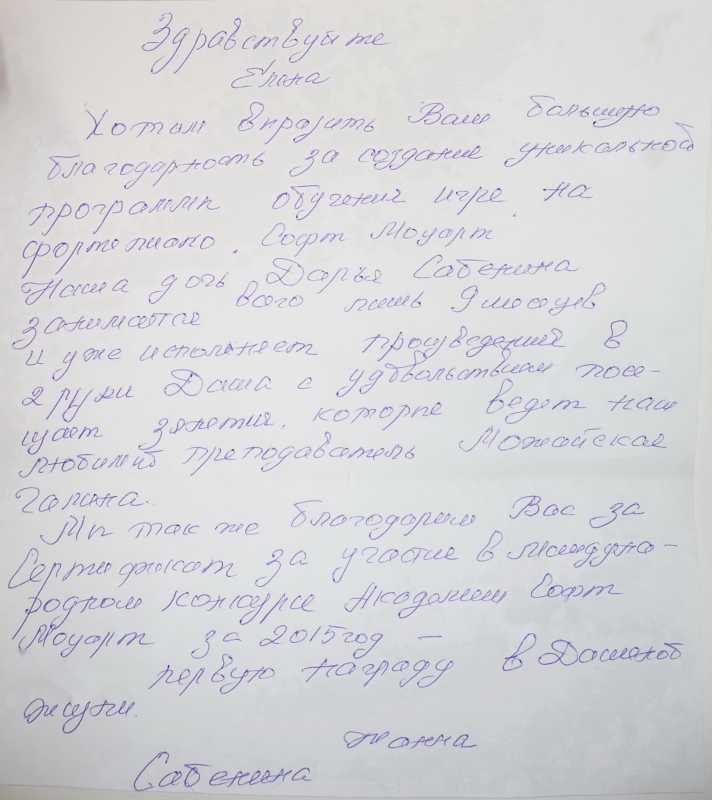 Здравствуйте
Елена
Хотим выразить Вам большую
благодарность за создание уникальной
программы обучения игре на
фортепиано. Софт Моцарт.
Наша дочь Дарья Сабенина
занимается всего лишь 9 месяцев
и уже исполняет произведения в
2 руки Даша с удовольствием посе-
щает занятия, которые ведет наш
любимый преподаватель Можайская
Галина.
Мы так же благодарим Вас за
Сертификат за участие в Междуна-
родном конкурсе Академии Софт
Моцарт за 2015 год -
первую награду в Дашиной
жизни.
Жанна
Сабенина